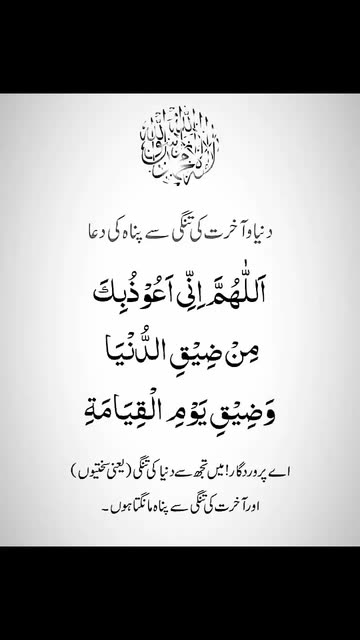 دنیا و آخرت کی تنگی سے پناہ کی دعا
اَللّٰهُمَّ اِنِّی اَعُوْذُبِكَ
مِنْ ضِیْقِ الدُّنْیَا
وَضِیْقِ یَوْمِ الْقِیَامَةِ
اے پروردگار! میں تجھ سے دنیا کی تنگی (یعنی سختیوں)
اور آخرت کی تنگی سے پناہ مانگتا ہوں۔